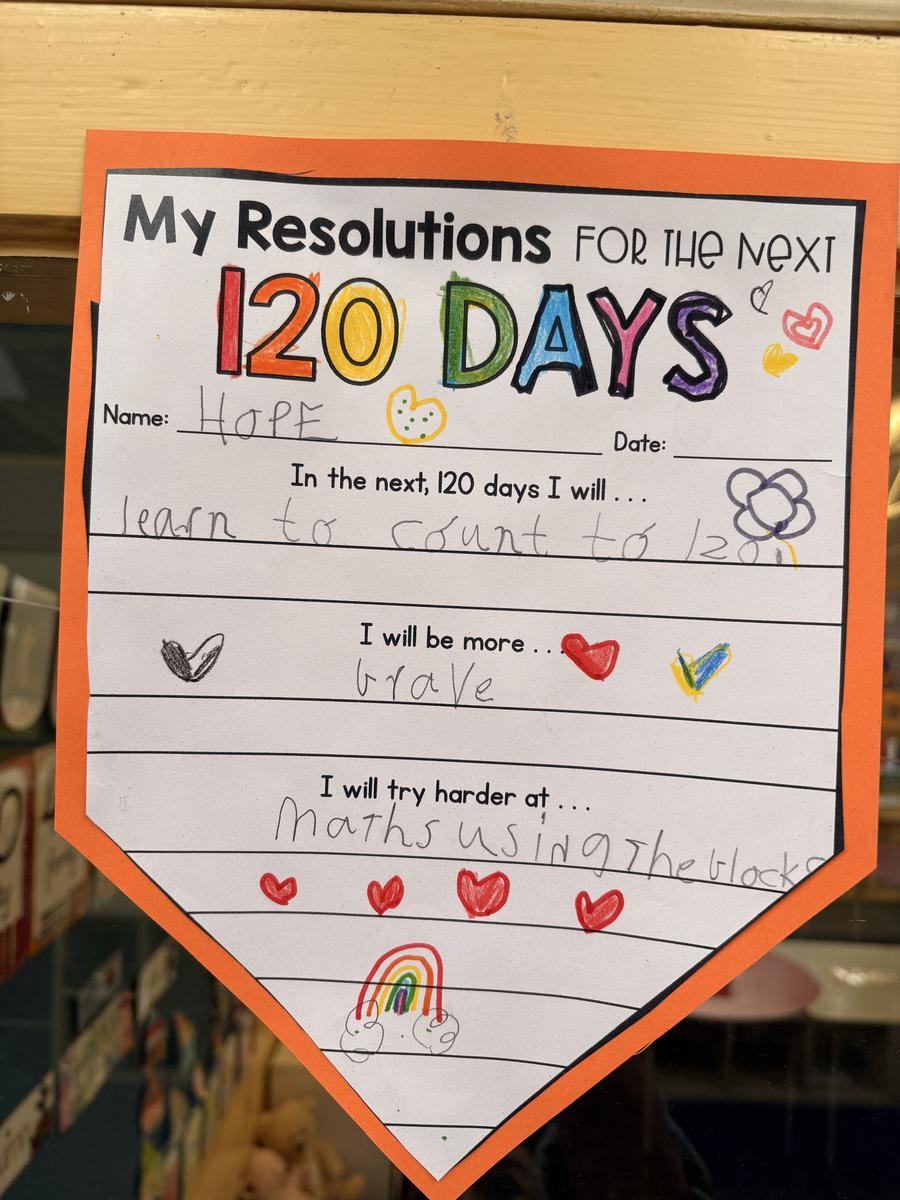 My Resolutions FOR THE NEXT
120 DAYS
Name: HOPE Date:
In the next, 120 days I will . . .
learn to count to 120.
I will be more . . .
brave
I will try harder at . . .
maths using The blocks